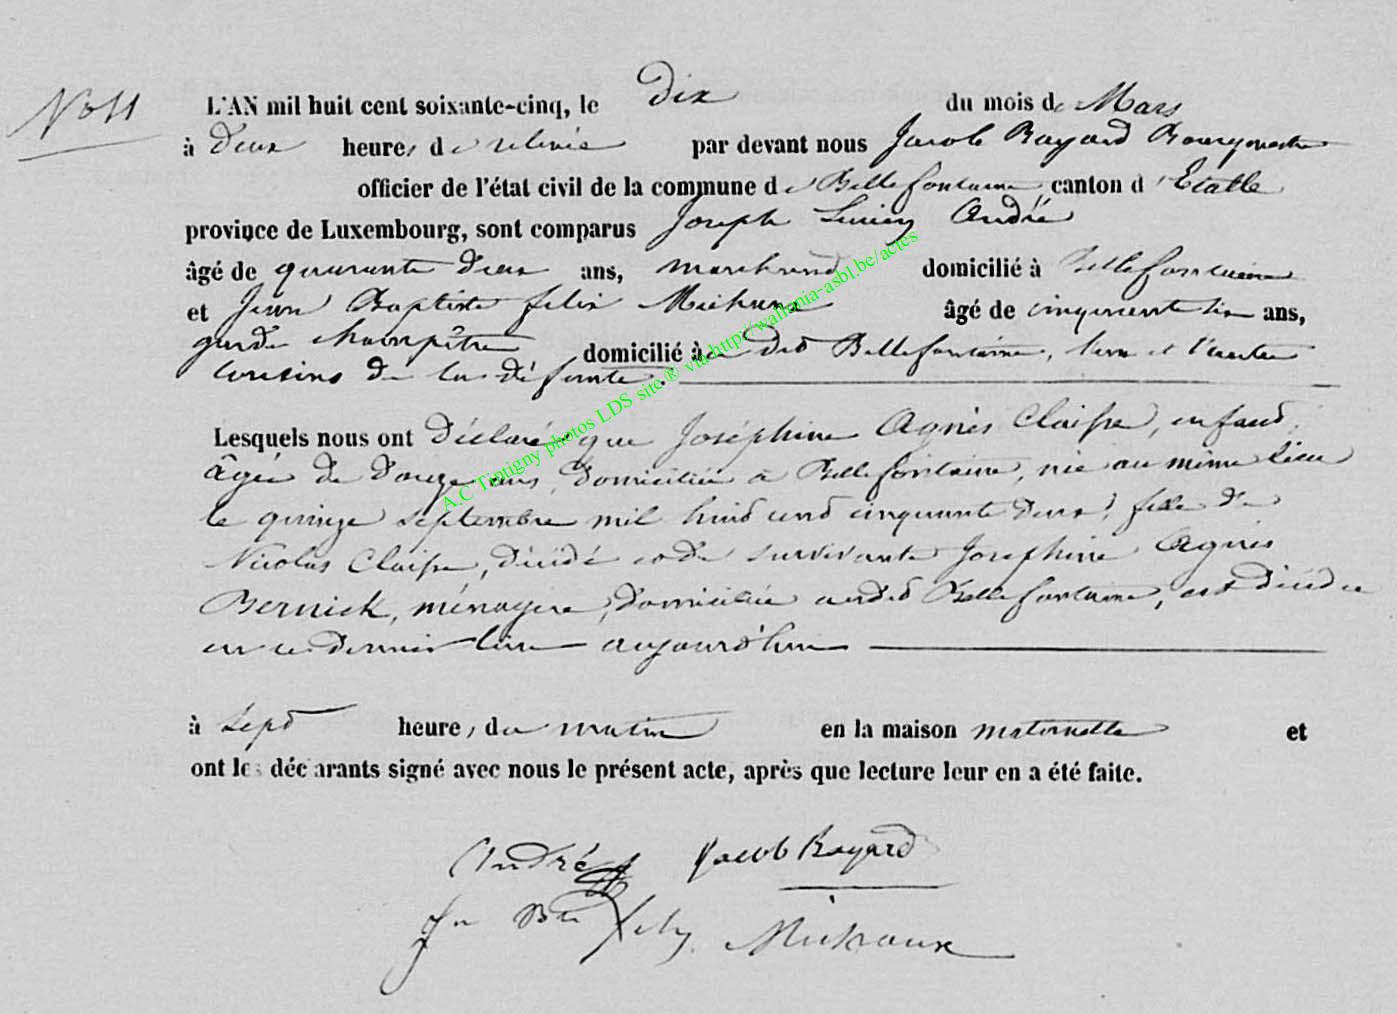 No 11
L'AN mil huit cent soixante-cinq, le dix du mois de Mars
à deux heures de relevée par devant nous Jacob Bayard Bourgmestre
officier de l'état civil de la commune de Bellefontaine canton d'Etalle
province de Luxembourg, sont comparus Joseph Lucien André
âgé de quarante deux ans, marchand domicilié à Bellefontaine
et Jean Baptiste felix Michaux âgé de cinquante six ans,
garde champêtre domicilié à dit Bellefontaine, l'un et l'autre
cousins de la défunte.
Lesquels nous ont déclaré que Joséphine Agnès Claisse, enfant,
âgée de douze ans, domiciliée à Bellefontaine, née au même lieu
le quinze septembre mil huit cent cinquante deux, fille de
Nicolas Claisse, décédé et de survivante Josephine Agnès
Bernick, ménagère, domiciliée audit Bellefontaine, est décédée
en ce dernier lieu aujourd'hui
à sept heures du matin en la maison maternelle et
ont les déclarants signé avec nous le présent acte, après que lecture leur en a été faite.
André Jacob Bayard
Jn Bte Felix Michaux
A.C Tintigny photos LDS site ® via http://wallonia-asbl.be/actes